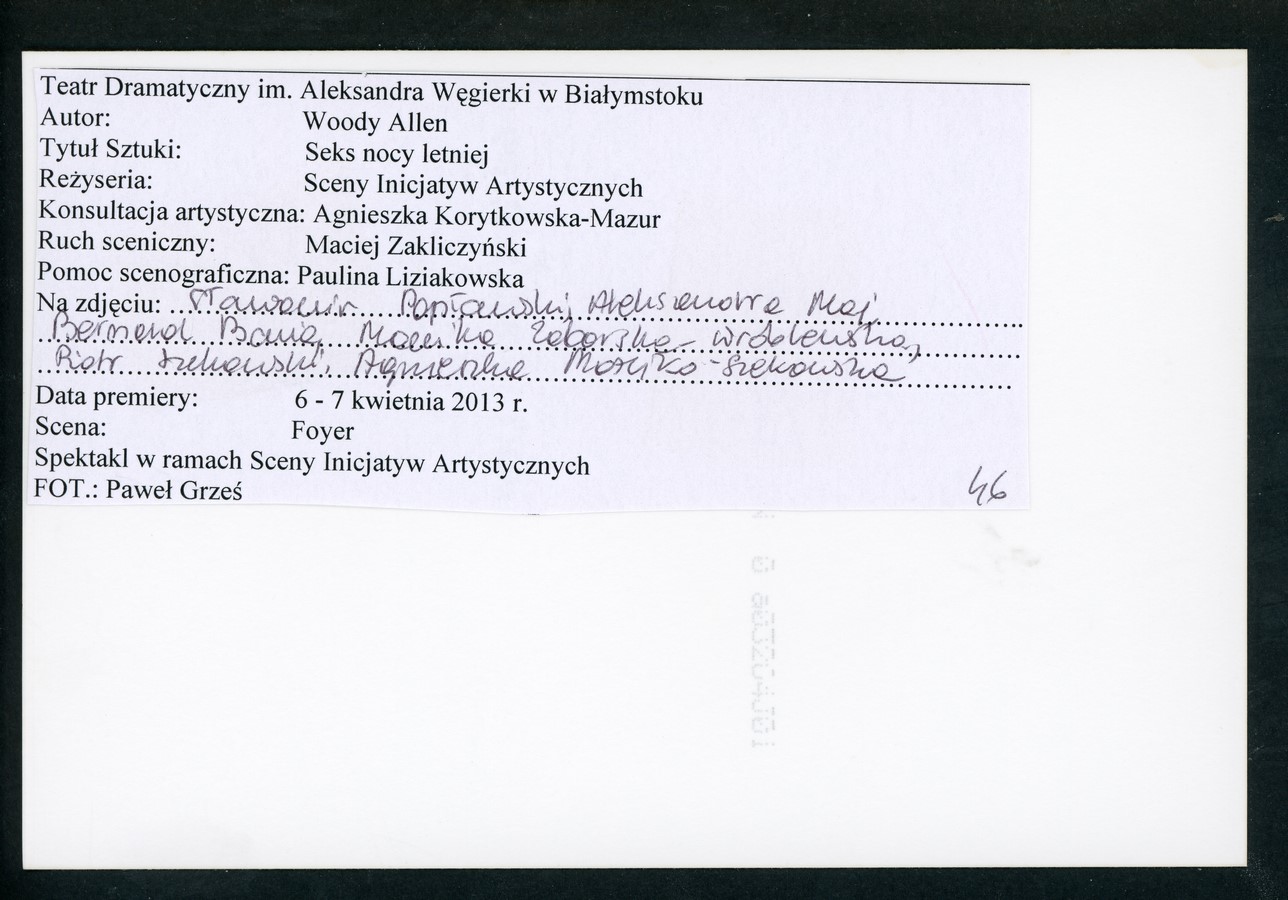 Teatr Dramatyczny im. Aleksandra Węgierki w Białymstoku
Autor: Woody Allen
Tytuł Sztuki: Seks nocy letniej
Reżyseria: Sceny Inicjatyw Artystycznych
Konsultacja artystyczna: Agnieszka Korytkowska-Mazur
Ruch sceniczny: Maciej Zakliczyński
Pomoc scenograficzna: Paulina Liziakowska
Na zdjęciu: Sławomir Popławski, Aleksandra Maj,
Bernard Bania, Monika Zaborska-Wróblewska,
Piotr Szekowski, Agnieszka Możejko-Szekowska
Data premiery: 6 - 7 kwietnia 2013 r.
Scena: Foyer
Spektakl w ramach Sceny Inicjatyw Artystycznych
FOT.: Paweł Grześ
46